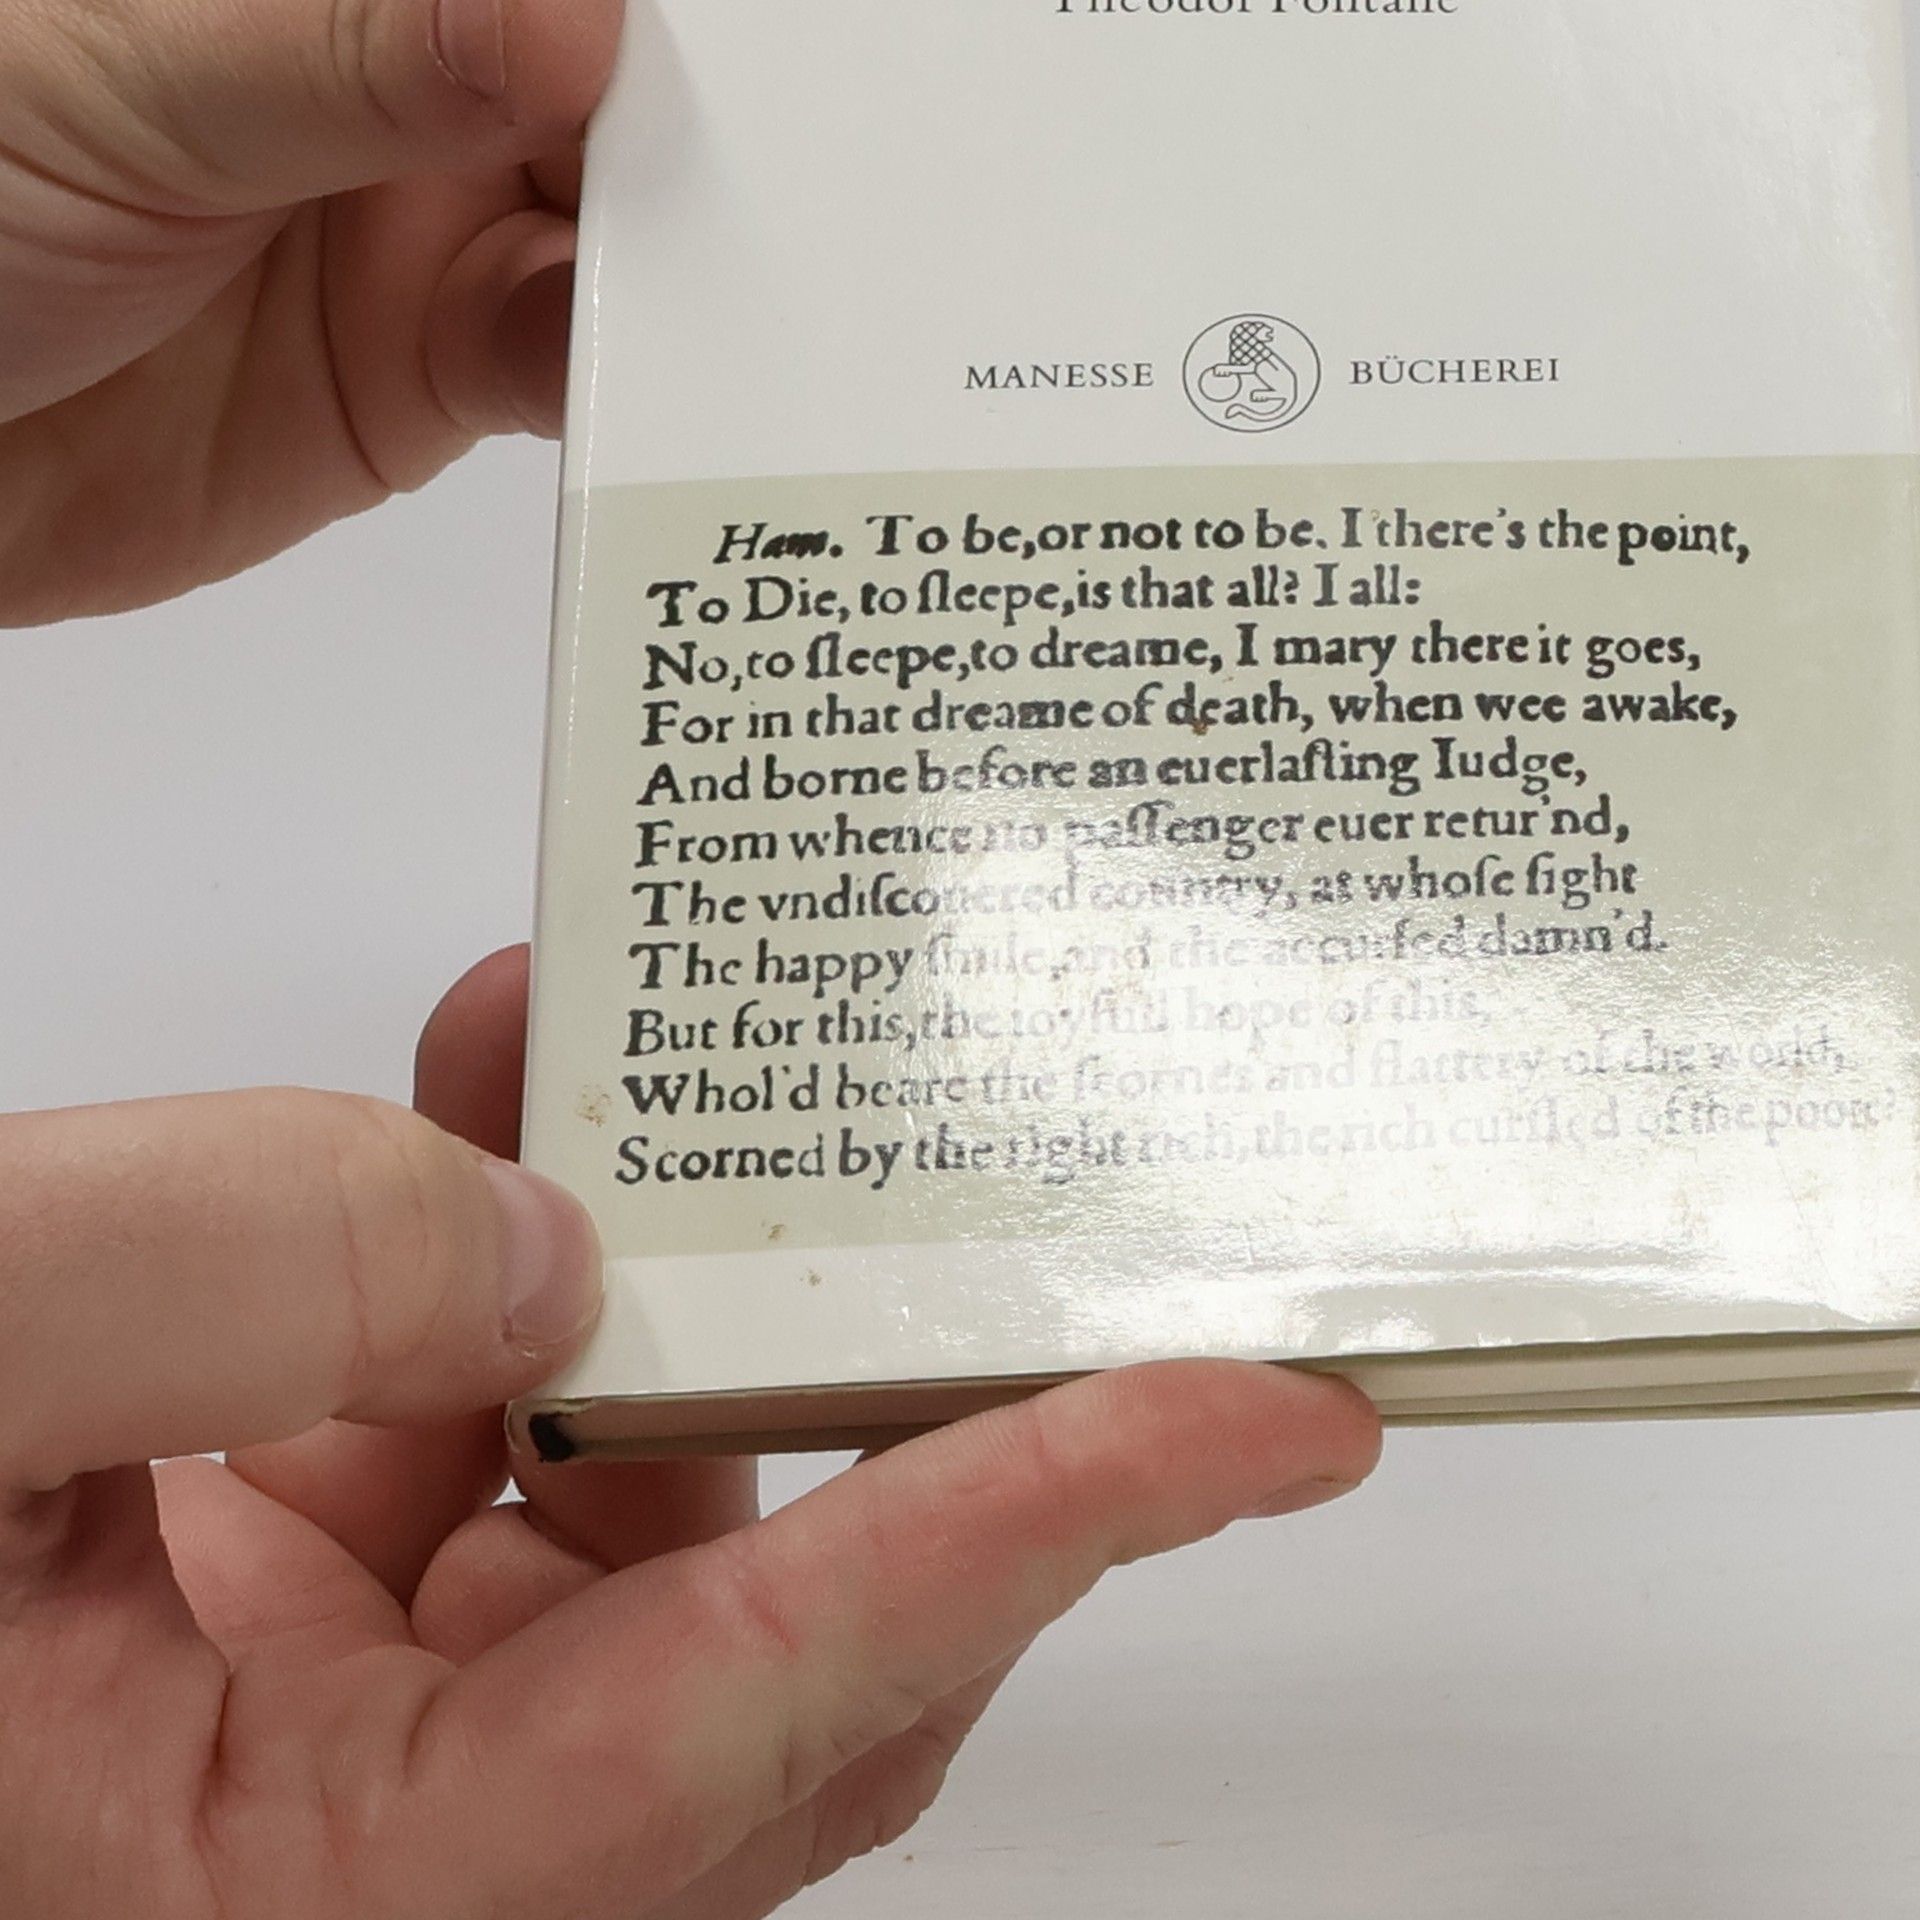 Theodor Fontane
MANESSE BÜCHEREI
Ham. To be, or not to be. I there's the point,
To Die, to ſleepe, is that all? I all:
No, to ſleepe, to dreame, I mary there it goes,
For in that dreame of death, when wee awake,
And borne before an euerlaſting Iudge,
From whence no paſſenger euer retur'nd,
The vndiſcouered country, at whoſe ſight
The happy ſmile, and the accurſed damn'd.
But for this, the ioyfull hope of this,
Whol'd beare the ſcornes and flattery of the world,
Scorned by the right rich, the rich curſſed of the poore?